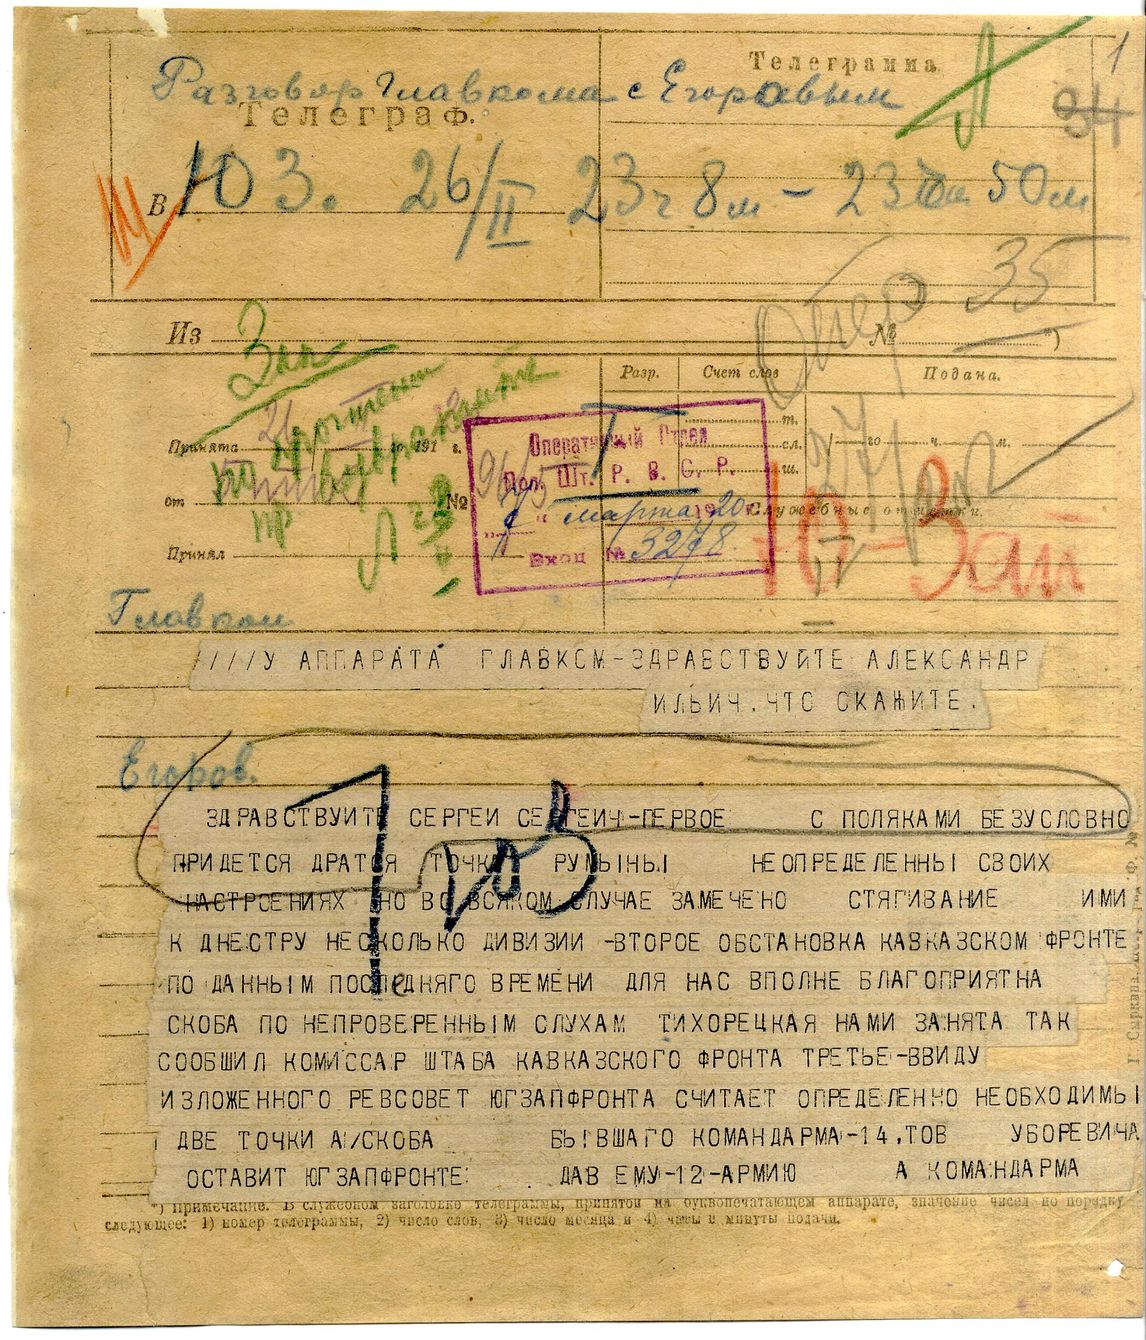 Телеграмма.
1
Разговор Главкома с Егоровым
Телеграф.
34
В Ю З. 26/II 23ч 8м – 23ч 50м
Опер 35
Из № *)
Зап
Разр. Счет слов Подана.
Принята 191 г. т. го ч. м.
по прочтении
возвратите
сл.
Оперативный Отдел
Пол. Шт. Р. В. С. Р.
ш.
от №
марта 1920 г.
Служебные отметки.
Вход №
Ю-Зап
Принял
Главком
////У АППАРАТА ГЛАВКСМ-ЗДРАВСТВУЙТЕ АЛЕКСАНДР
ИЛЬИЧ.ЧТО СКАЖИТЕ.
Егоров.
ЗДРАВСТВУИТЕ СЕРГЕИ СЕРГЕИЧ-ПЕРВОЕ С ПОЛЯКАМИ БЕЗУСЛОВНО
ПРИДЕТСЯ ДРАТСЯ ТОЧКА РУМЫНЫ НЕОПРЕДЕЛЕННЫ СВОИХ
НАСТРОЕНИЯХ НО ВО ВСЯКОМ СЛУЧАЕ ЗАМЕЧЕНО СТЯГИВАНИЕ ИМИ
К ДНЕСТРУ НЕСКОЛЬКО ДИВИЗИИ -ВТОРОЕ ОБСТАНОВКА КАВКАЗСКОМ ФРОНТЕ
ПО ДАННЫМ ПОСЛЕДНЯГО ВРЕМЕНИ ДЛЯ НАС ВПОЛНЕ БЛАГОПРИЯТНА
СКОБА ПО НЕПРОВЕРЕННЫМ СЛУХАМ ТИХОРЕЦКАЯ НАМИ ЗАНЯТА ТАК
СООБШИЛ КОМИССАР ШТАБА КАВКАЗСКОГО ФРОНТА ТРЕТЬЕ-ВВИДУ
ИЗЛОЖЕННОГО РЕВСОВЕТ ЮГЗАПФРОНТА СЧИТАЕТ ОПРЕДЕЛЕННО НЕОБХОДИМЫ
ДВЕ ТОЧКИ А/СКОБА БЫВШАГО КОМАНДАРМА-14,ТОВ УБОРЕВИЧА
ОСТАВИТ ЮГЗАПФРОНТЕ: ДАВ ЕМУ-12-АРМИЮ А КОМАНДАРМА
*) Примечание. В служебном заголовке телеграммы, принятой на буквопечатающем аппарате, значение чисел по порядку
следующее: 1) номер телеграммы, 2) число слов, 3) число месяца и 4) часы и минуты подачи.